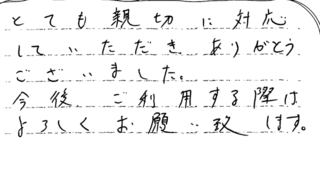 とても親切に対応
していただきありがとう
ございました。
今後ご利用する際は
よろしくお願い致します。